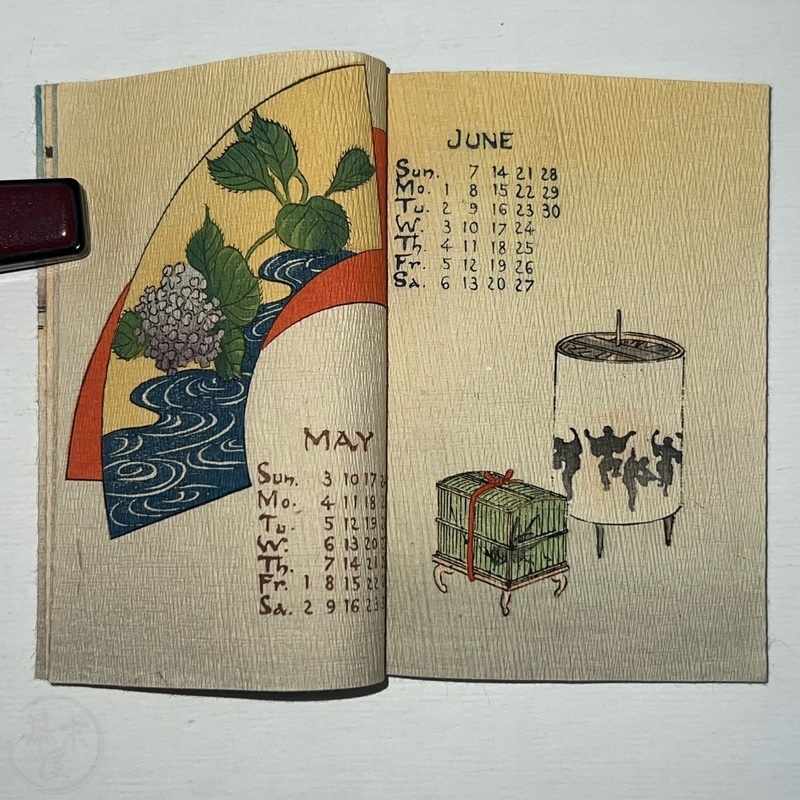 MAY
Sun. 3 10 17
Mo. 4 11 18
Tu. 5 12 19
W. 6 13 20
Th. 7 14 21
Fr. 1 8 15 22
Sa. 2 9 16 23
JUNE
Sun. 7 14 21 28
Mo. 1 8 15 22 29
Tu. 2 9 16 23 30
W. 3 10 17 24
Th. 4 11 18 25
Fr. 5 12 19 26
Sa. 6 13 20 27